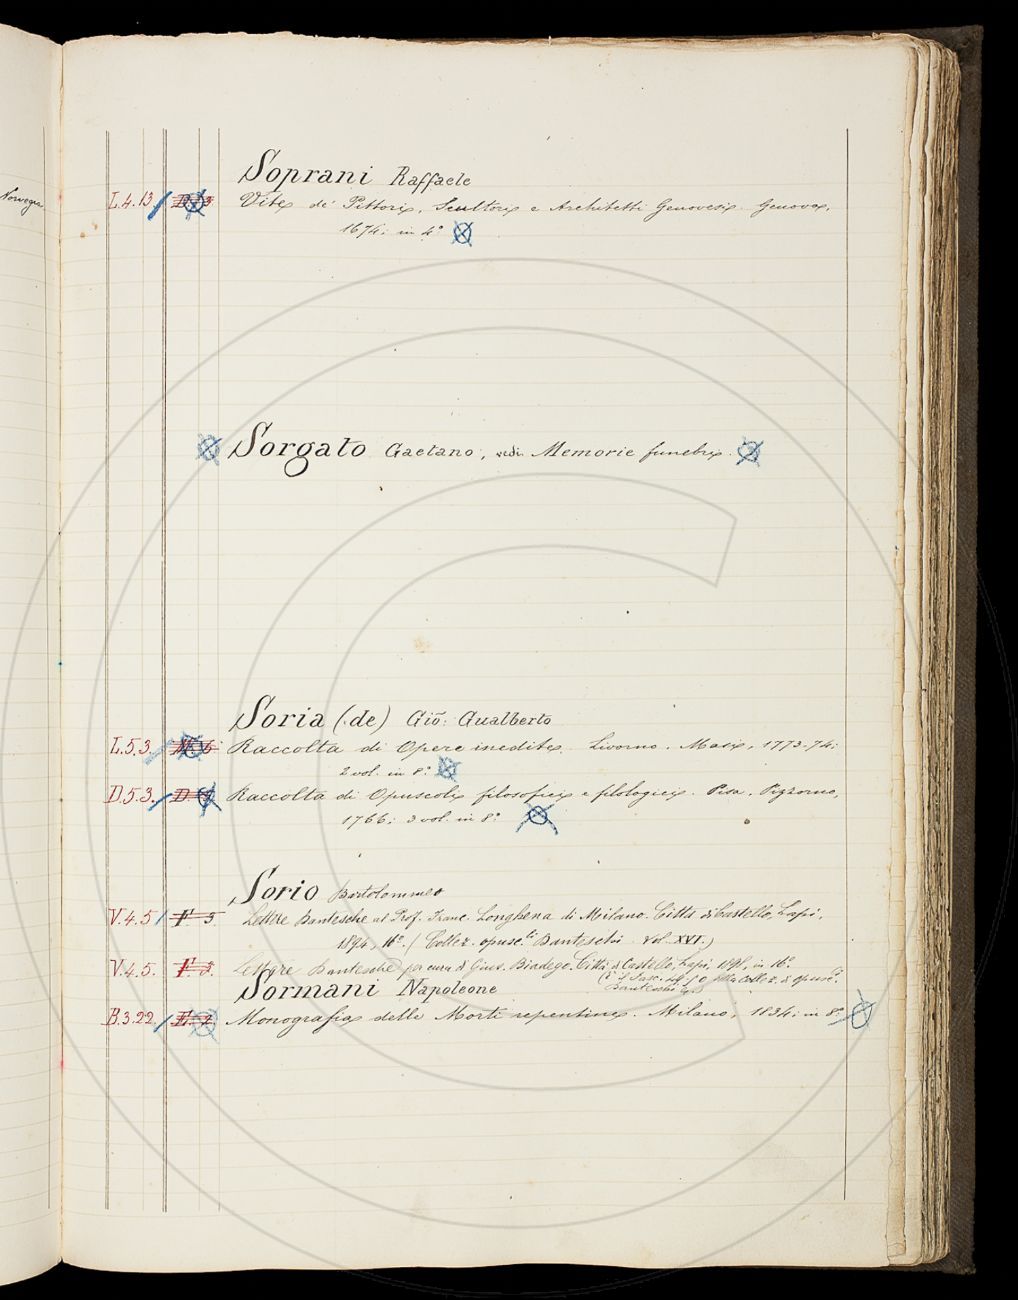 Norvegia
Soprani Raffaele
L.4.13 Vite de' Pittori, Scultori e Architetti Genovesi. Genova,
1674; in 4º
Sorgato Gaetano, vedi Memorie funebri.
Soria (de) Gio: Gualberto
L.5.3. Raccolta di Opere inedite. Livorno. Masi, 1773-74;
2 vol. in 8º
D.5.3. Raccolta di Opuscoli filosofici e filologici. Pisa. Pizzorno,
1766; 3 vol. in 8º
Sorio Bartolommeo
V.4.5 F 5 Lettere Dantesche al Prof. Franc. Longhena di Milano. Città di Castello, Lapi,
1894, 16º. (Collez. opusc.li Danteschi Vol. XVI.)
V.4.5. Lettere Dantesche per cura di Gius. Biadego. Città di Castello, Lapi, in 16º.
alla Collez. di opusc.
Danteschi
Sormani Napoleone
B.3.22 Monografia delle Morti repentine. Milano, 1834; in 8º